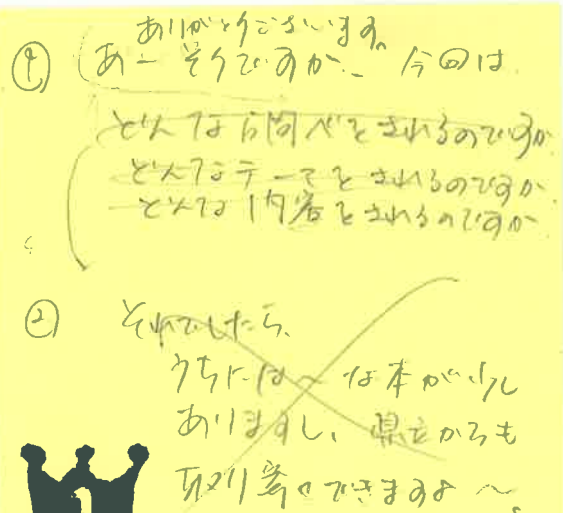 ありがとうございます。
① あー そうですか、今回は
どんな研究をされるのですか
どんなテーマをされるのですか
どんな内容をされるのですか
② それでしたら、
うちには〜な本が少し
ありますし、県立からも
取り寄せできますよ〜。